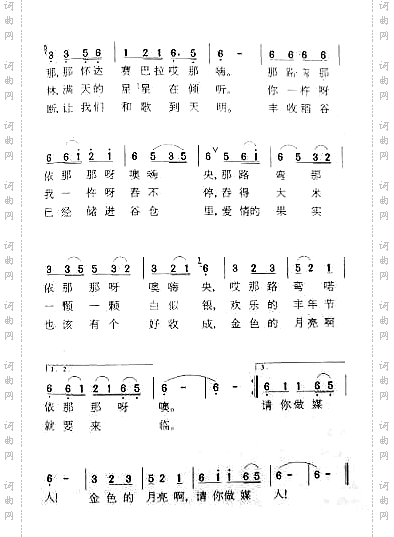 3 3 5 6 | 1 2 1 6· 5 | 6 - | 6 6 6 6 |
那,那怀达 赛巴拉哎那 嗨。 那路弯那
林,满天的 星星在倾听。 你一杵呀
断,让我们 和歌到天明。 丰收稻谷
6 6 i 2 i | 6 5 3 5 | 6 5 6 i | 6 6 6 |
依那那呀 噢嗨 央,那路 弯那
我一杵呀 舂不 停,舂得 大米
已经储进 谷仓 里,爱情的 果实
3 3 5 3 5 | 6 6 | 3 2 1 | 6 3 2 3 | 5 2 1 |
依那那呀 噢嗨 央,哎那路 弯喏
一颗一颗 白似 银,欢乐的 丰年节
也该有个 好收 成,金色的 月亮啊
1. 2. 3.
依那那呀 噢。 请你做媒
就要来 临。
6 - | 3 2 3 | 5 2 1 | 6 i i 6 5 | 6 - | 6 - ‖
人! 金色的 月亮啊,请你做媒 人!
词曲网
词曲网
词曲网
词曲网
词曲网
词曲网
词曲网
词曲网
词曲网
词曲网
词曲网
词曲网